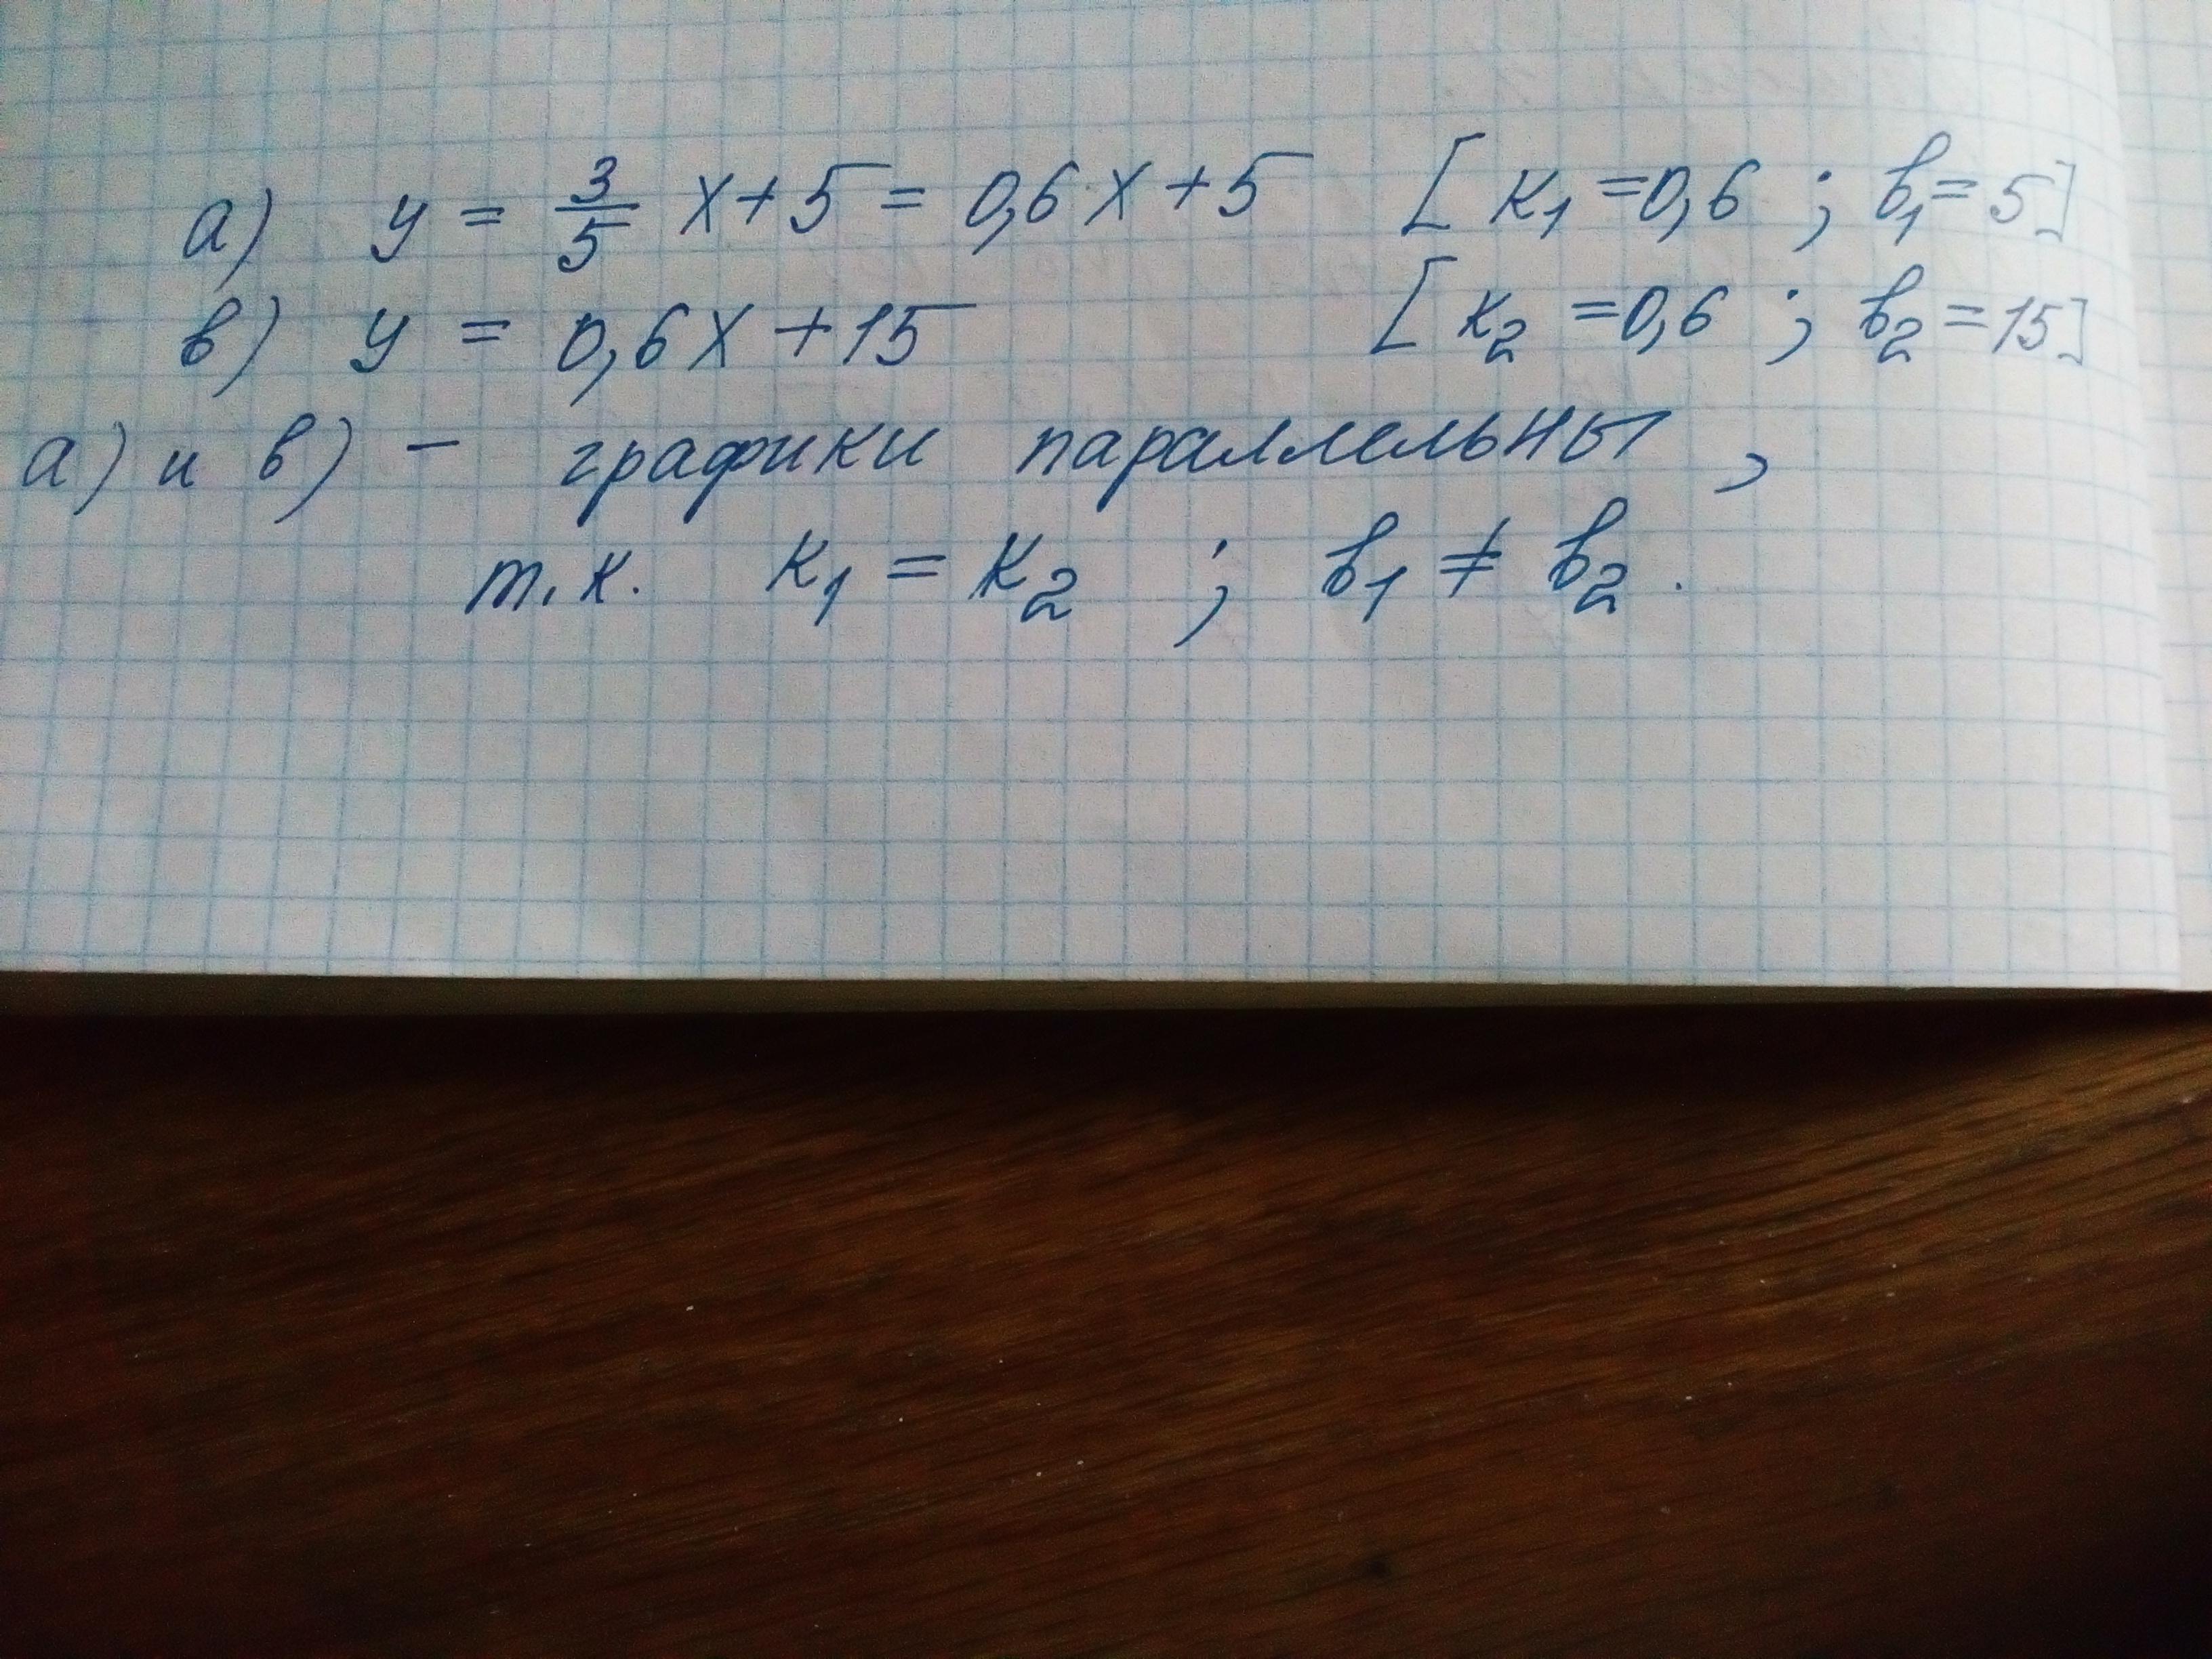 а) y = 3/5 x + 5 = 0,6x + 5 [к₁ = 0,6 ; b₁ = 5]
в) y = 0,6x + 15 [к₂ = 0,6 ; b₂ = 15]
а) и в) – графики параллельны,
т.к. к₁ = к₂ ; b₁ ≠ b₂.